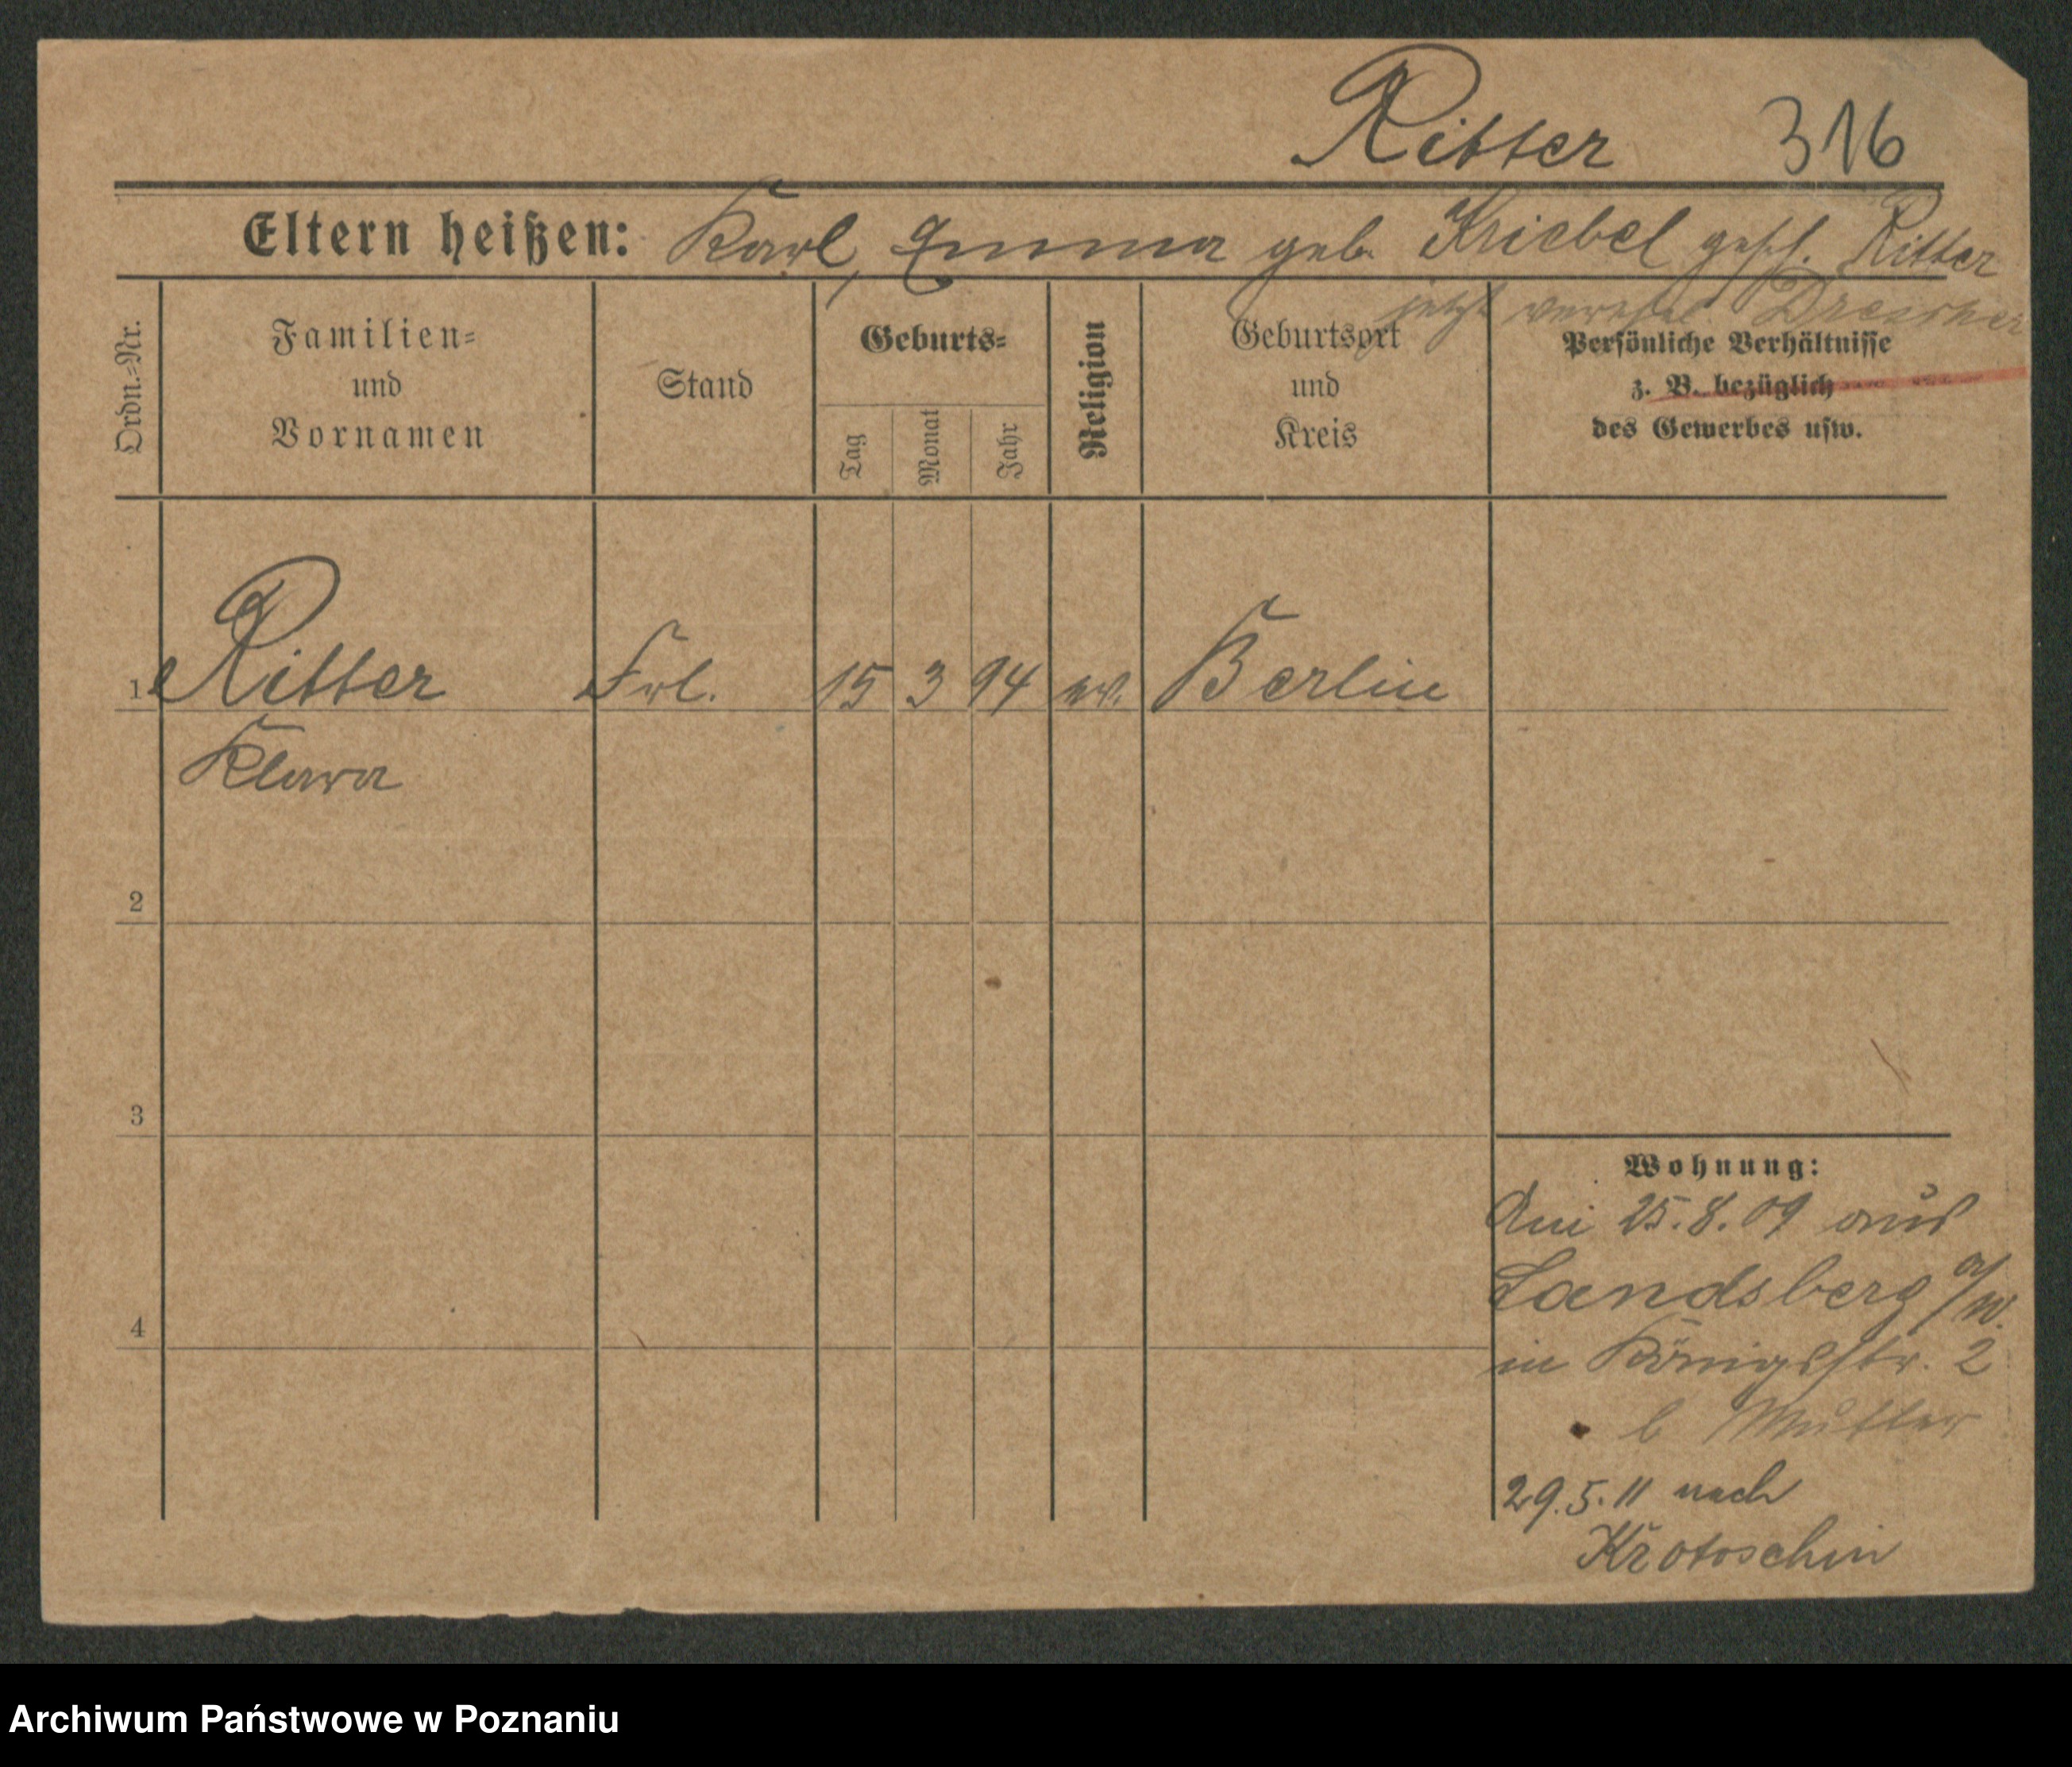 Ritter 316
Eltern heißen: Karl, Emma geb. Kriebel gesch. Ritter
jetzt verehel.
Ordn.=Nr.
Familien=
und
Vornamen
Stand
Geburts=
Tag
Monat
Jahr
Religion
Geburtsort
und
Kreis
Persönliche Verhältnisse
z. B. bezüglich
des Gewerbes usw.
1 Ritter Frl. 15 3 94 ev. Berlin
Klara
2
3
4
Wohnung:
Am 25.8.09 aus
Landsberg a/W.
in Königsstr. 2
b Mutter
29.5.11 nach
Krotoschin
Archiwum Państwowe w Poznaniu